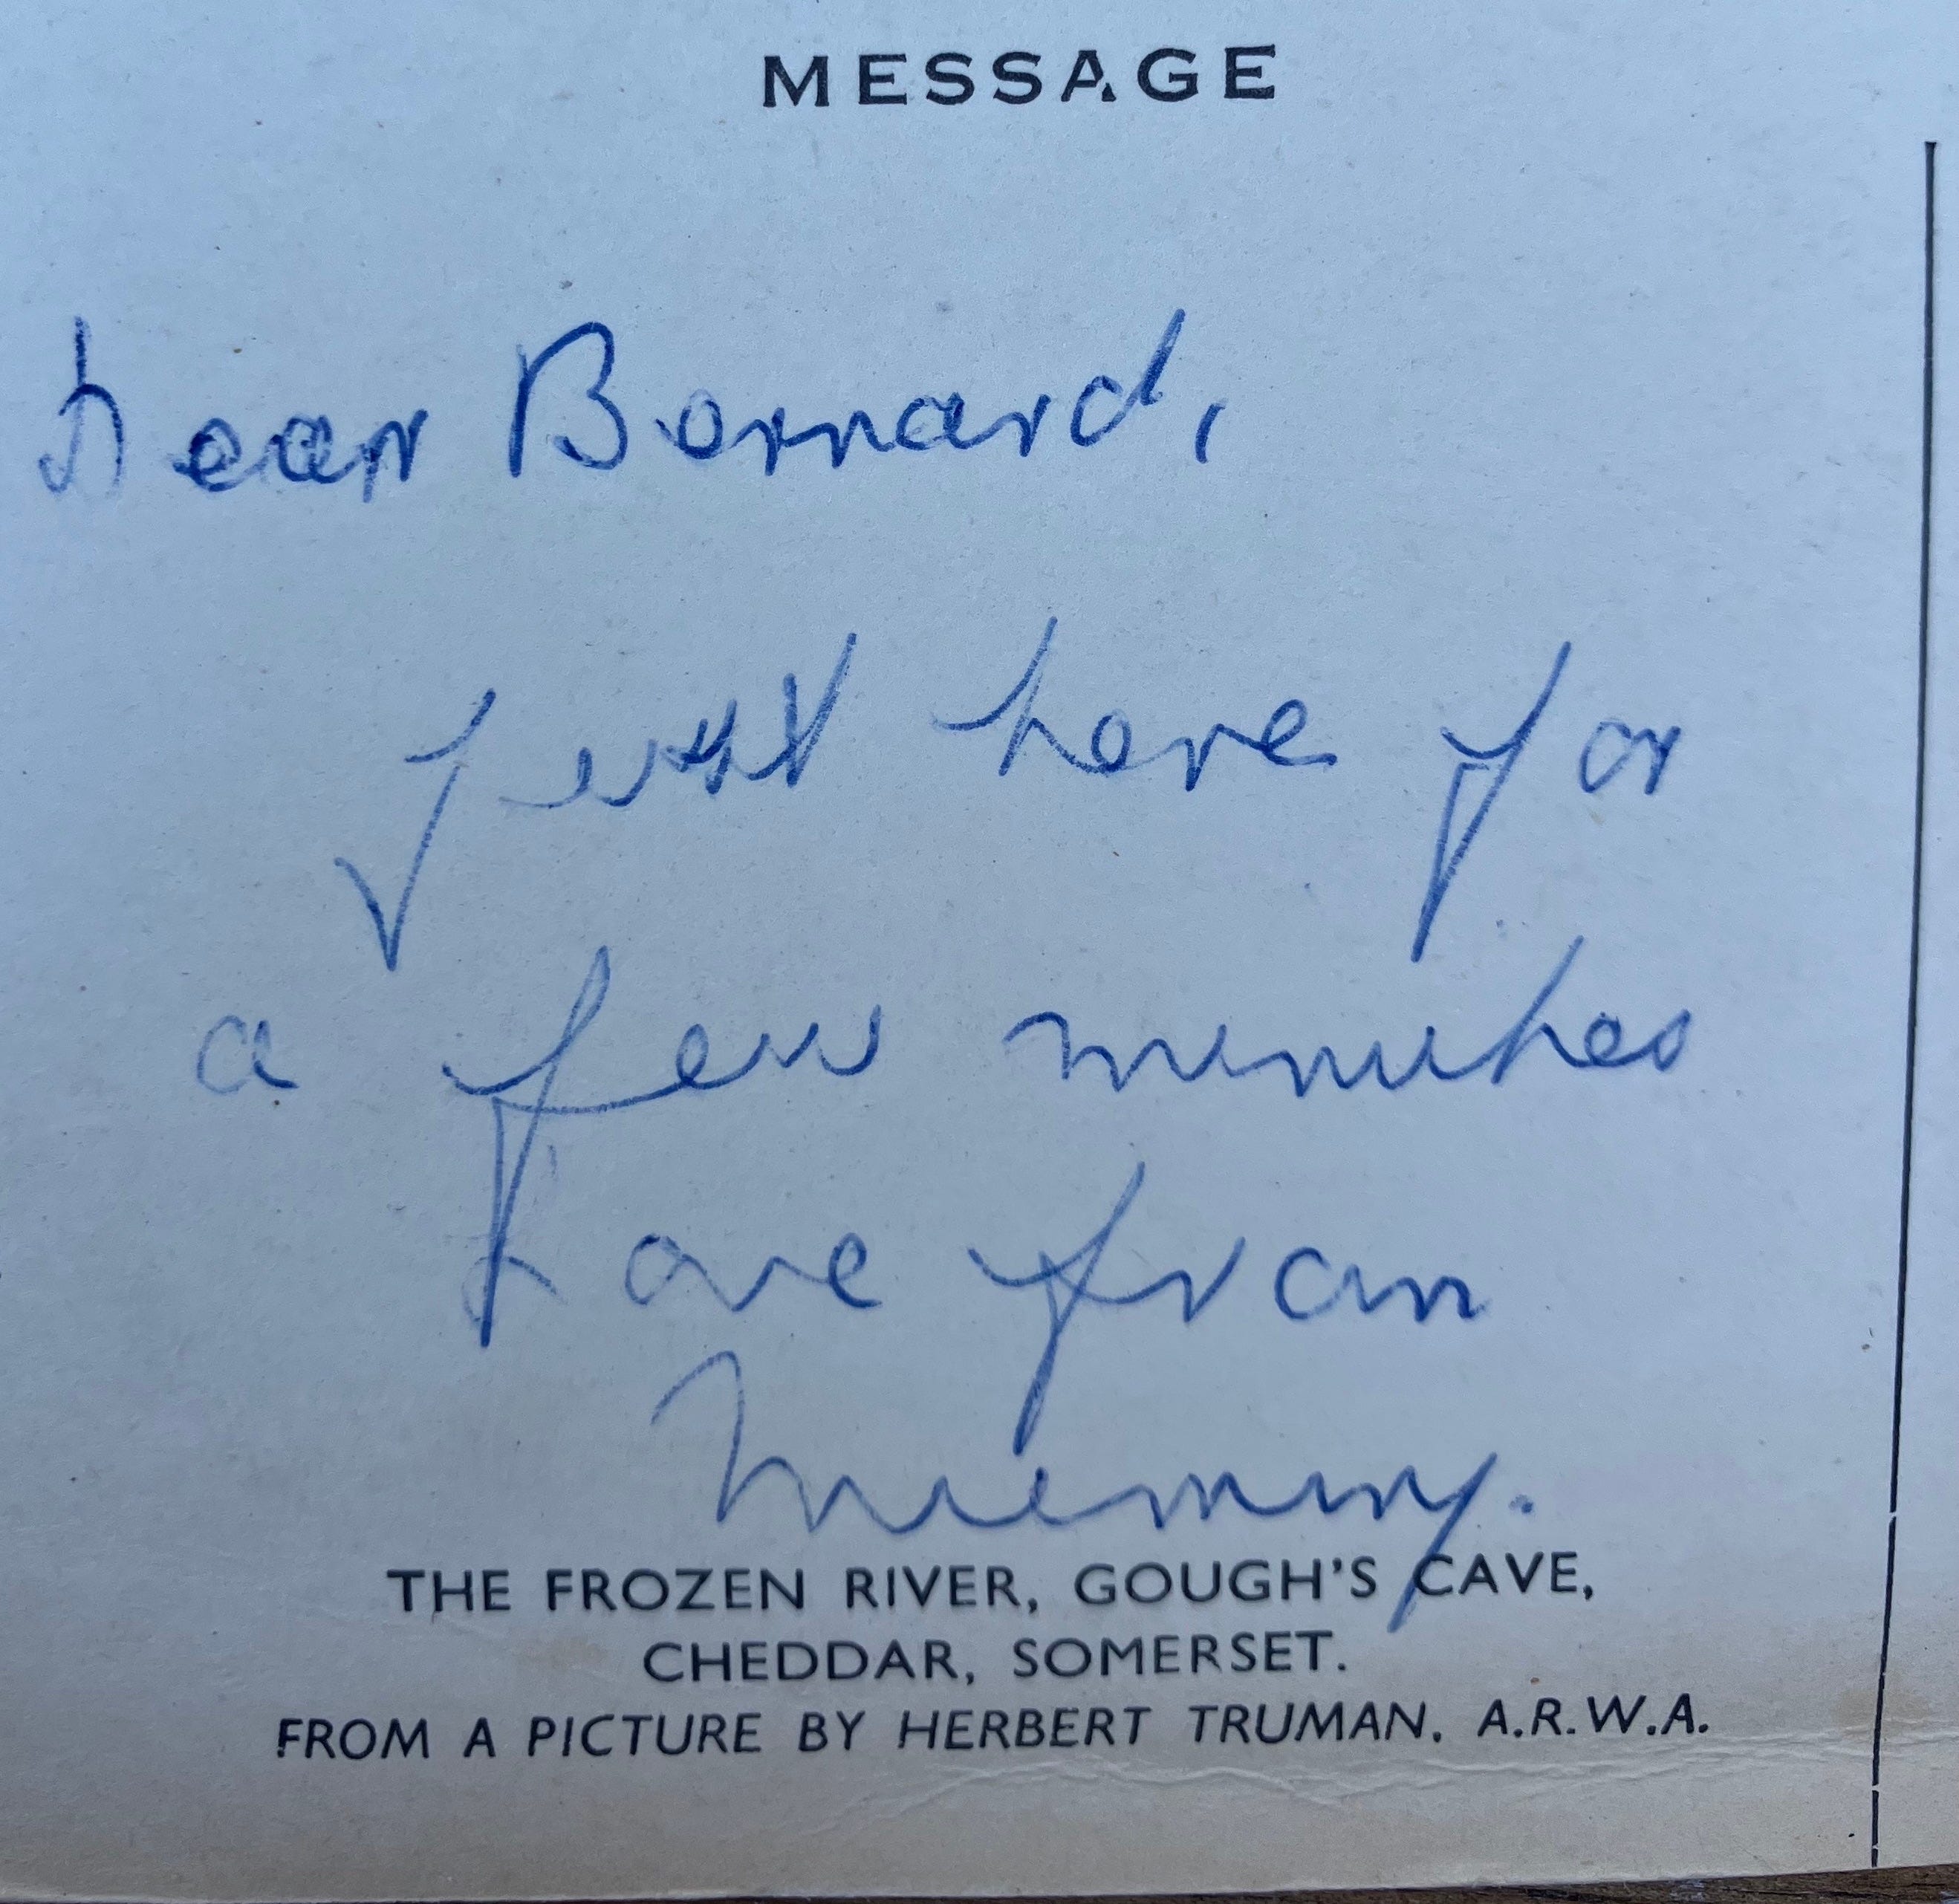 MESSAGE
Dear Bernard,
Just here for
a few minutes
Love from
Mummy.
THE FROZEN RIVER, GOUGH'S CAVE,
CHEDDAR, SOMERSET.
FROM A PICTURE BY HERBERT TRUMAN. A.R.W.A.